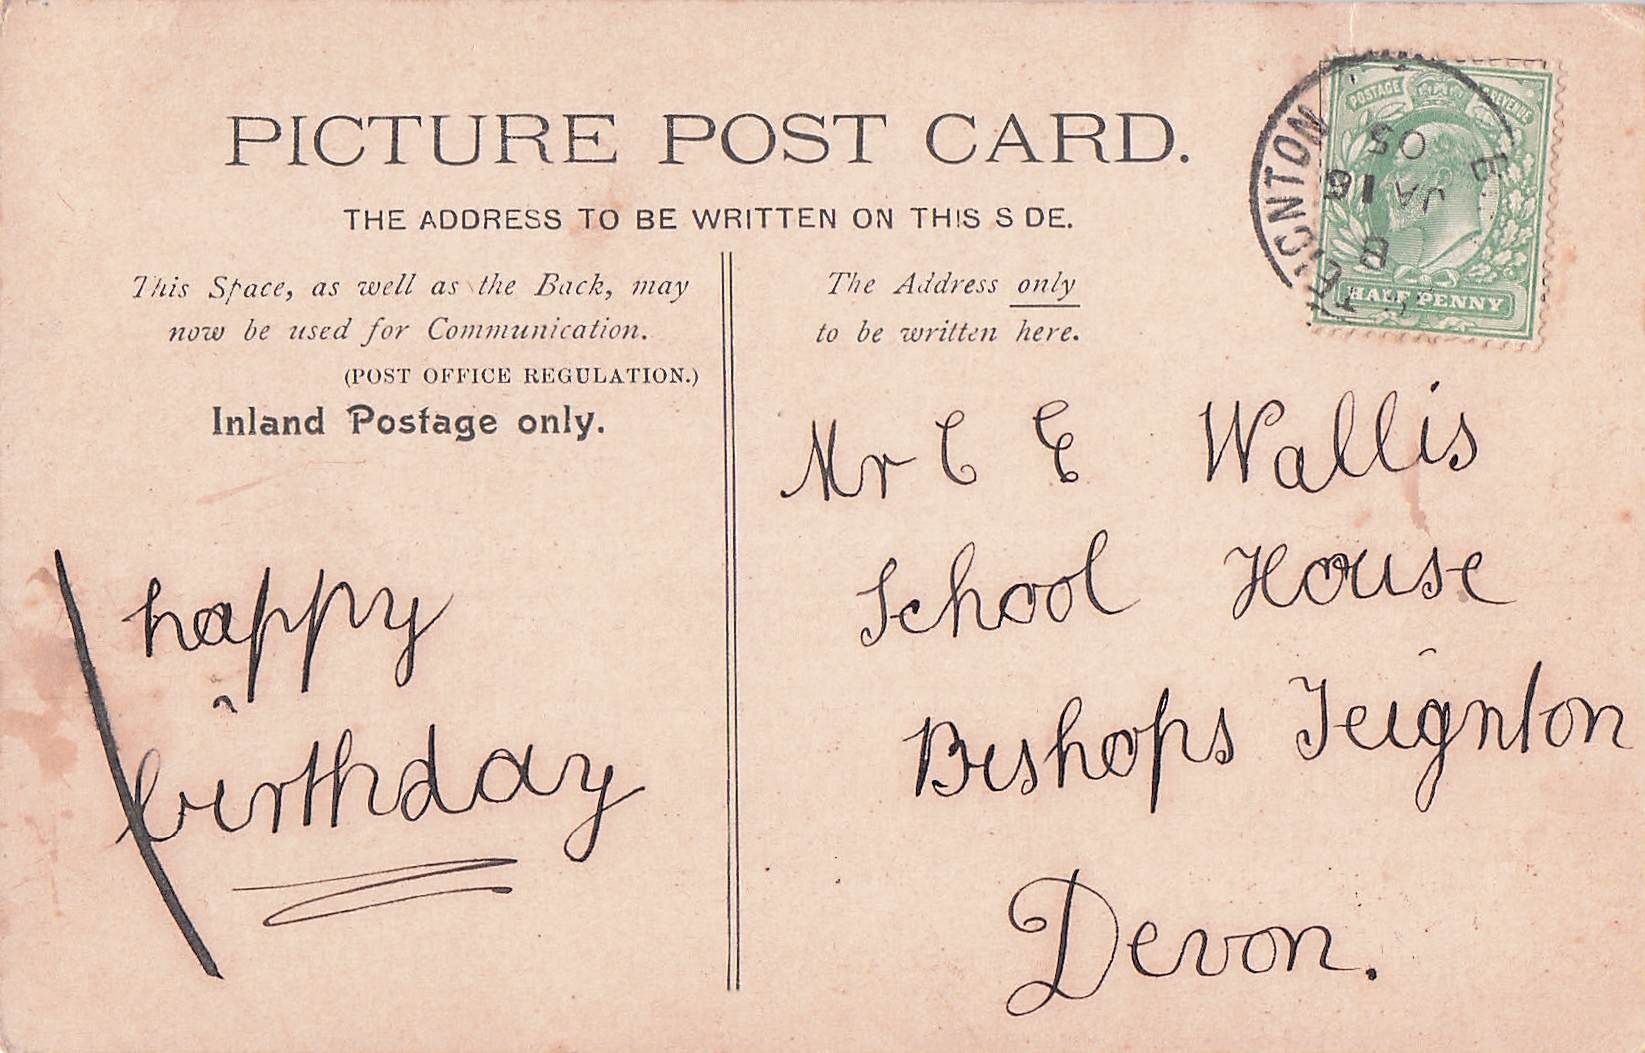 PICTURE POST CARD.
THE ADDRESS TO BE WRITTEN ON THIS S DE.
This Space, as well as the Back, may
now be used for Communication.
(POST OFFICE REGULATION.)
Inland Postage only.
The Address only
to be written here.
POSTAGE REVENUE
HALF PENNY
TEIGNTON
B
JA 18
05
E
happy
birthday
Mr C E Wallis
School House
Bishops Teignton
Devon.